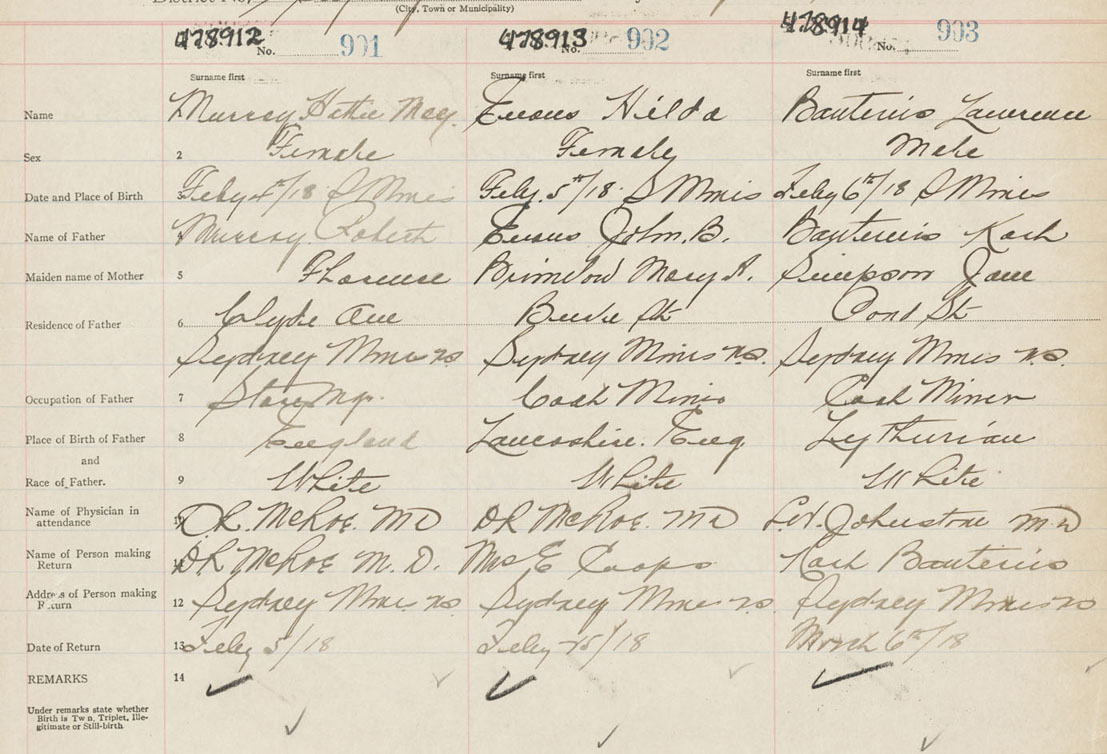 (City, Town or Municipality)
478912 No. 901 478913 No. 902 478914 No. 903
Surname first Surname first Surname first
Name Murray Hettie May. Evans Hilda Bauterius Lawrence
Sex 2 Female Female Male
Date and Place of Birth 3 Feby 4th/18 S Mines Feby. 5th/18 S Mines Feby 6th/18 S Mines
Name of Father Murray Robert Evans John. B. Bauterius
Maiden name of Mother 5 Florence Brimelow Mary Simpson Jane
Residence of Father 6 Clyde Ave St Pond St
Sydney Mines NS Sydney Mines NS. Sydney Mines NS.
Occupation of Father 7 Store Mgr. Coal Miner Coal Miner
Place of Birth of Father 8 England Lancashire. Eng
and
Race of Father. 9 White White White
Name of Physician in 10 DR. McRoe. MD DR McRoe. MD Johnston MD
attendance
Name of Person making 11 DR McRoe M.D. Mrs E Bauterius
Return
Address of Person making 12 Sydney Mines NS Sydney Mines NS Sydney Mines NS
Return
Date of Return 13 Feby 5/18 Feby 25/18 March 6th/18
REMARKS 14
Under remarks state whether
Birth is Twin, Triplet, Ille-
gitimate or Still-birth